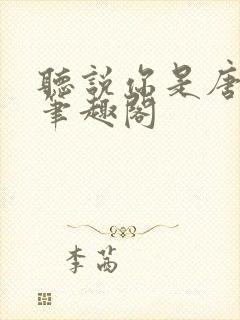 聽説你是唐
筆趣閣
李茜